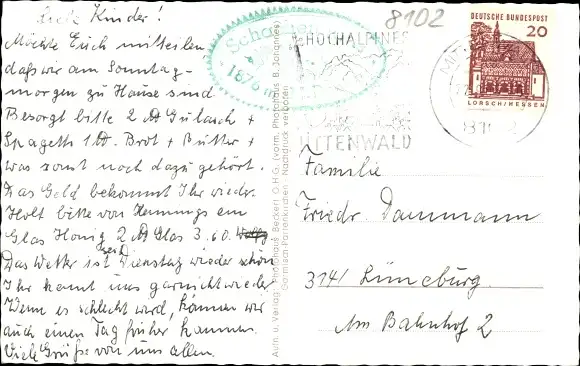 Liebe Kinder!
Möchte Euch mitteilen,
daß wir am Sonntag-
morgen zu Hause sind
Besorgt bitte 2 ℔ Gulasch +
Spagetti 1 ℔. Brot + Butter +
was sonst noch dazu gehört.
Das Geld bekommt Ihr wieder.
Holt bitte von Hennings ein
Glas Honig 2 ℔ Glas 3.60.
Das Wetter ist seit Dienstag wieder schön
Ihr kennt uns garnicht wieder
Wenn es schlecht wird, kommen wir
auch einen Tag früher kommen.
Viele Grüße von uns allen.
Aufn. u. Verlag: Photohaus Beckert O.H.G. (vorm. Photohaus B. Johannes)
Garmisch-Partenkirchen Nachdruck verboten
1876 m
8102
HOCHALPINES
MITTENWALD
DEUTSCHE BUNDESPOST
20
LORSCH/HESSEN
Familie
Friedr. Dammann
314/ Lüneburg.
Am Bahnhof 2